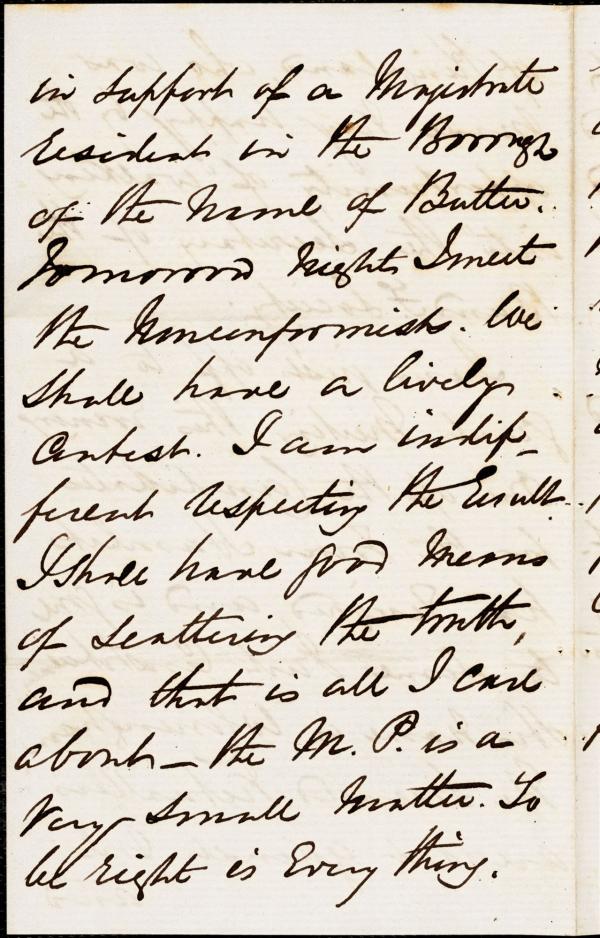 in support of a Magistrate
resident in the Borough
of the name of Butter.
Tomorrow night I meet
the Nonconformists. We
shall have a lively
contest. I am indif-
ferent respecting the result.
I shall have good means
of scattering the truth,
and that is all I care
about – the M. P. is a
very small matter. To
be right is Every thing.